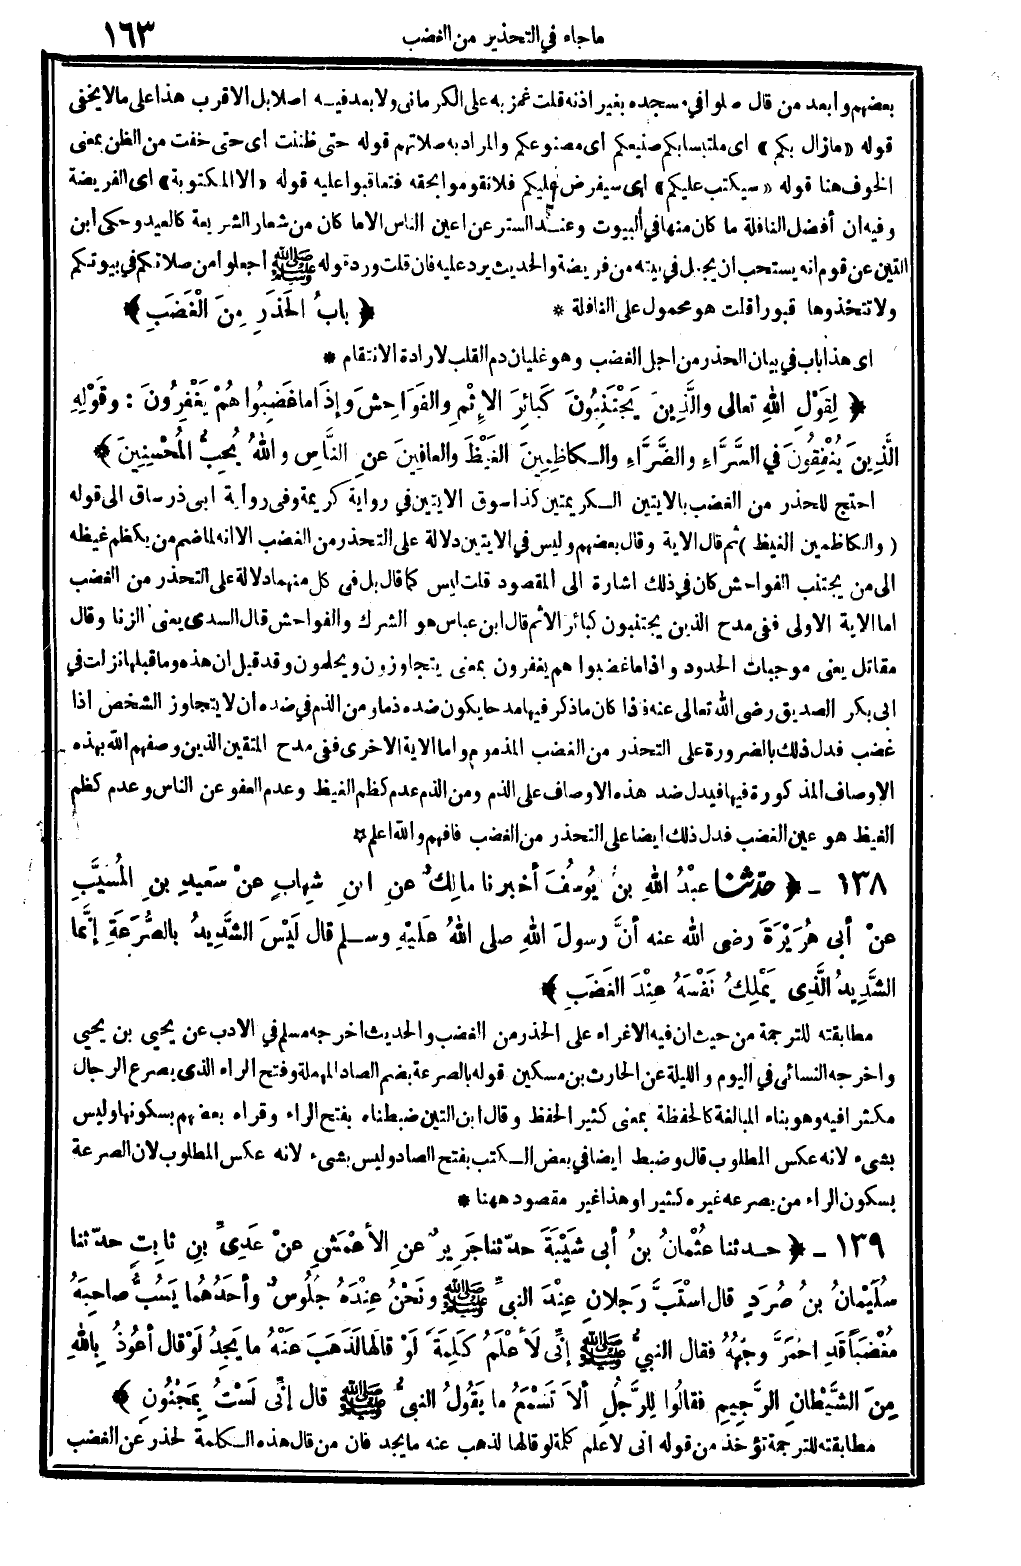 ماجاء في التحذير من الغضب ١٦٣
بعضهم وابعد من قال صلوا في مسجده بغير اذنه قلت غمز به على الكرماني ولا بعد فيه اصلا بل الاقرب هذا على مالا يخفى
قوله «مازال بكم» اى ملتبسا بكم صنيعكم أى مصنوعكم والمراد به صلاتهم قوله حتى ظننت اى حتى خفت من الظن بمعنى
الخوف هنا قوله «سيكتب عليكم» اى سيفرض عليكم فلا تقوموا بحقه فتعاقبوا عليه قوله «الا المكتوبة» اى الفريضة
وفيه ان أفضل النافلة ما كان منها في البيوت وعند الستر عن اعين الناس الا ما كان من شعار الشريعة كالعيد وحكى ابن
التين عن قوم انه يستحب ان يجعل في بيته من فريضة والحديث يرد عليه فان قلت ورد قوله ﷺ اجعلوا من صلاتكم في بيوتكم
ولا تتخذوها قبورا قلت هو محمول على النافلة * ﴿ بابُ الحَذَرِ مِنَ الْغَضَبِ ﴾
اى هذا باب في بيان الحذر من اجل الغضب وهو غليان دم القلب لارادة الانتقام *
﴿ لِقَوْلِ اللهِ تعالى والَّذِينَ يَجْتَنِبُونَ كَبائِرَ الإِثْمِ والفَوَاحِشَ وإذَا ماغَضِبُوا هُمْ يَغْفِرُونَ : وقَوْلِهِ
الَّذِينَ يُنْفِقُونَ في السَّرَّاءِ والضَّرَّاءِ والكاظِمِينَ الغَيْظَ والعافِينَ عنِ النَّاسِ واللهُ يُحِبُّ المُحْسِنِينَ ﴾
احتج للحذر من الغضب بالايتين الكريمتين كذا سوق الايتين في رواية كريمة وفى رواية ابى ذر ساق الى قوله
(والكاظمين الغيظ) ثم قال الاية وقال بعضهم وليس في الايتين دلالة على التحذر من الغضب الا انه لما ضم من يكظم غيظه
الى من يجتنب الفواحش كان في ذلك اشارة الى المقصود قلت ليس كما قال بل في كل منهما دلالة على التحذر من الغضب
اما الاية الاولى ففى مدح الذين يجتنبون كبائر الاثم قال ابن عباس هو الشرك والفواحش قال السدى يعنى الزنا وقال
مقاتل يعنى موجبات الحدود واذا ما غضبوا هم يغفرون بمعنى يتجاوزون ويحلمون وقد قيل ان هذه وما قبلها نزلت في
ابى بكر الصديق رضى الله تعالى عنه فاذا كان ما ذكر فيها مدحا يكون ضده ذما ومن الذم في ضده أن لا يتجاوز الشخص اذا
غضب فدل ذلك بالضرورة على التحذر من الغضب المذموم واما الاية الاخرى ففى مدح المتقين الذين وصفهم الله بهذه
الاوصاف المذكورة فيها فيدل ضد هذه الاوصاف على الذم ومن الذم عدم كظم الغيظ وعدم العفو عن الناس وعدم كظم
الغيظ هو عين الغضب فدل ذلك ايضا على التحذر من الغضب فافهم والله اعلم *
١٣٨ - ﴿ حدّثنا عبْدُ اللهِ بنُ يُوسُفَ أخبرنا مالِكٌ عنِ ابنِ شِهابٍ عنْ سَعِيدِ بنِ المُسَيَّبِ
عنْ أبى هُرَيْرَةَ رضى الله عنه أنَّ رسولَ اللهِ صلى اللهُ عَلَيْهِ وسلم قال لَيْسَ الشَّدِيدُ بالصُّرَعَةِ إنَّما
الشَّدِيدُ الَّذِى يَمْلِكُ نَفْسَهُ عِنْدَ الغَضَبِ ﴾
مطابقته للترجمة من حيث ان فيه الاغراء على الحذر من الغضب والحديث اخرجه مسلم في الادب عن يحيى بن يحيى
واخرجه النسائى في اليوم والليلة عن الحارث بن مسكين قوله بالصرعة بضم الصاد المهملة وفتح الراء الذى يصرع الرجال
مكثرا فيه وهو بناء المبالغة كالحفظة بمعنى كثير الحفظ وقال ابن التين ضبطناه بفتح الراء وقراه بعضهم بسكونها وليس
بشىء لانه عكس المطلوب قال وضبط ايضا في بعض الكتب بفتح الصاد وليس بشىء لانه عكس المطلوب لان الصرعة
بسكون الراء من يصرعه غيره كثيرا وهذا غير مقصود ههنا *
١٣٩ - ﴿ حدثنا عثْمانُ بنُ أبى شَيْبَةَ حدّثنا جَرِيرٌ عنِ الأعْمَشِ عنْ عَدِىِّ بنِ ثابِتٍ حدّثنا
سُلَيْمانُ بنُ صُرَدٍ قال اسْتَبَّ رَجلانِ عِنْدَ النبىِّ ﷺ ونَحْنُ عِنْدَهُ جُلُوسٌ وأحَدُهُما يَسُبُّ صاحِبَهُ
مُغْضَبًا قَدِ احْمَرَّ وجْهُهُ فقال النبىُّ ﷺ إنِّى لَأعْلَمُ كَلِمَةً لَوْ قالَها لَذَهَبَ عَنْهُ ما يَجِدُ لَوْ قال أعُوذُ بِاللهِ
مِنَ الشَّيْطانِ الرَّجِيمِ فقالُوا لِلرَّجُلِ ألاَ تَسْمَعُ ما يَقُولُ النبىُّ ﷺ قال إنِّى لَسْتُ بِمَجْنُونٍ ﴾
مطابقته للترجمة تؤخذ من قوله انى لاعلم كلمة لو قالها لذهب عنه ما يجد فان من قال هذه الكلمة لحذر عن الغضب